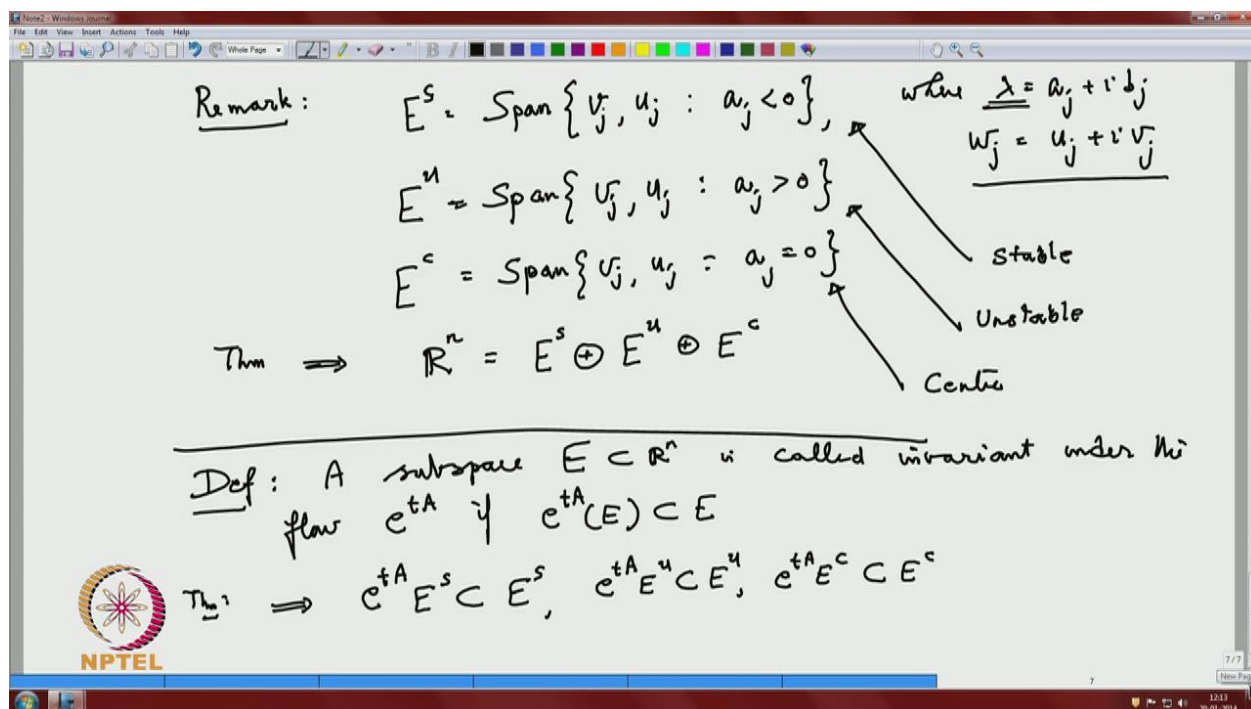 Note2 - Windows Journal
File Edit View Insert Actions Tools Help
Whole Page
Remark: E^s = Span{v_j, u_j : a_j < 0}, where λ = a_j + i b_j
w_j = u_j + i v_j
E^u = Span{v_j, u_j : a_j > 0}
E^c = Span{v_j, u_j : a_j = 0}
Stable
Unstable
Thm ⟹ ℝ^n = E^s ⊕ E^u ⊕ E^c
Def: A subspace E ⊂ ℝ^n is called invariant under the
flow e^{tA} if e^{tA}(E) ⊂ E
Thm: ⟹ e^{tA} E^s ⊂ E^s, e^{tA} E^u ⊂ E^u, e^{tA} E^c ⊂ E^c
NPTEL
7/7
7
New Pag
12:13
20-01-2014